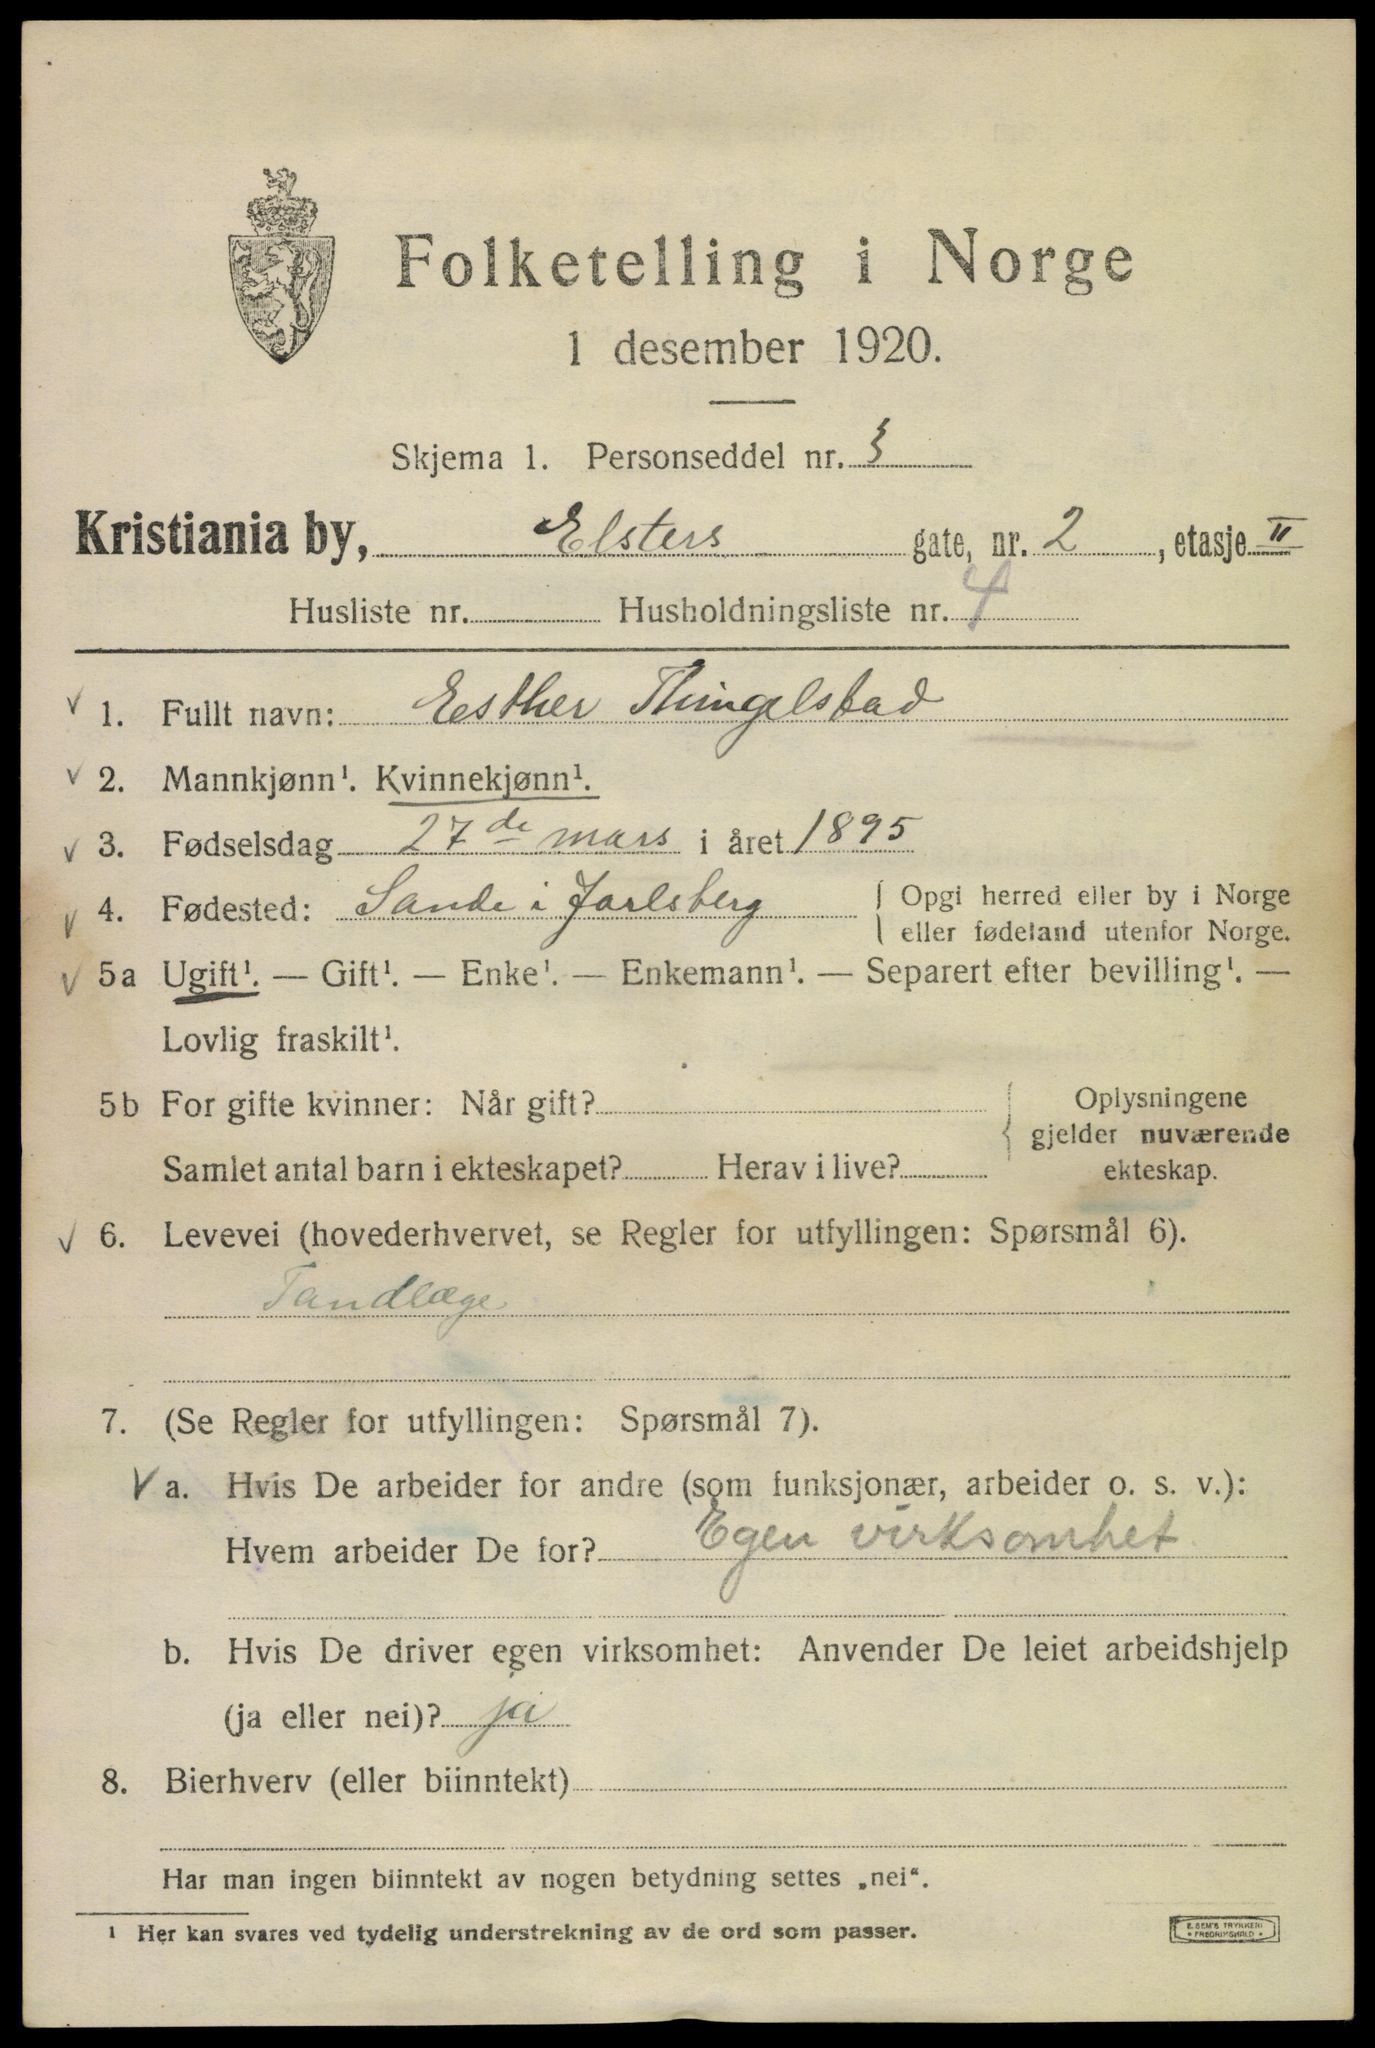 Folketelling i Norge
1 desember 1920.
Skjema 1. Personseddel nr. 3
Kristiania by, Elsters gate, nr. 2, etasje II
Husliste nr. Husholdningsliste nr. 4
1. Fullt navn: Esther Thingelstad
2. Mannkjønn¹. Kvinnekjønn¹.
3. Fødselsdag 27de mars i året 1895
4. Fødested: Sande i Jarlsberg { Opgi herred eller by i Norge
eller fødeland utenfor Norge.
5a Ugift¹. — Gift¹. — Enke¹. — Enkemann¹. — Separert efter bevilling¹. —
Lovlig fraskilt¹.
5b For gifte kvinner: Når gift? { Oplysningene
gjelder nuværende
Samlet antal barn i ekteskapet? Herav i live? ekteskap.
6. Levevei (hovederhvervet, se Regler for utfyllingen: Spørsmål 6).
Tandlæge
7. (Se Regler for utfyllingen: Spørsmål 7).
a. Hvis De arbeider for andre (som funksjonær, arbeider o. s. v.):
Hvem arbeider De for? Egen virksomhet
b. Hvis De driver egen virksomhet: Anvender De leiet arbeidshjelp
(ja eller nei)? ja
8. Bierhverv (eller biinntekt)
Har man ingen biinntekt av nogen betydning settes „nei“.
¹ Her kan svares ved tydelig understrekning av de ord som passer.
E. SEM'S TRYKKERI
• FREDRIKSHALD •